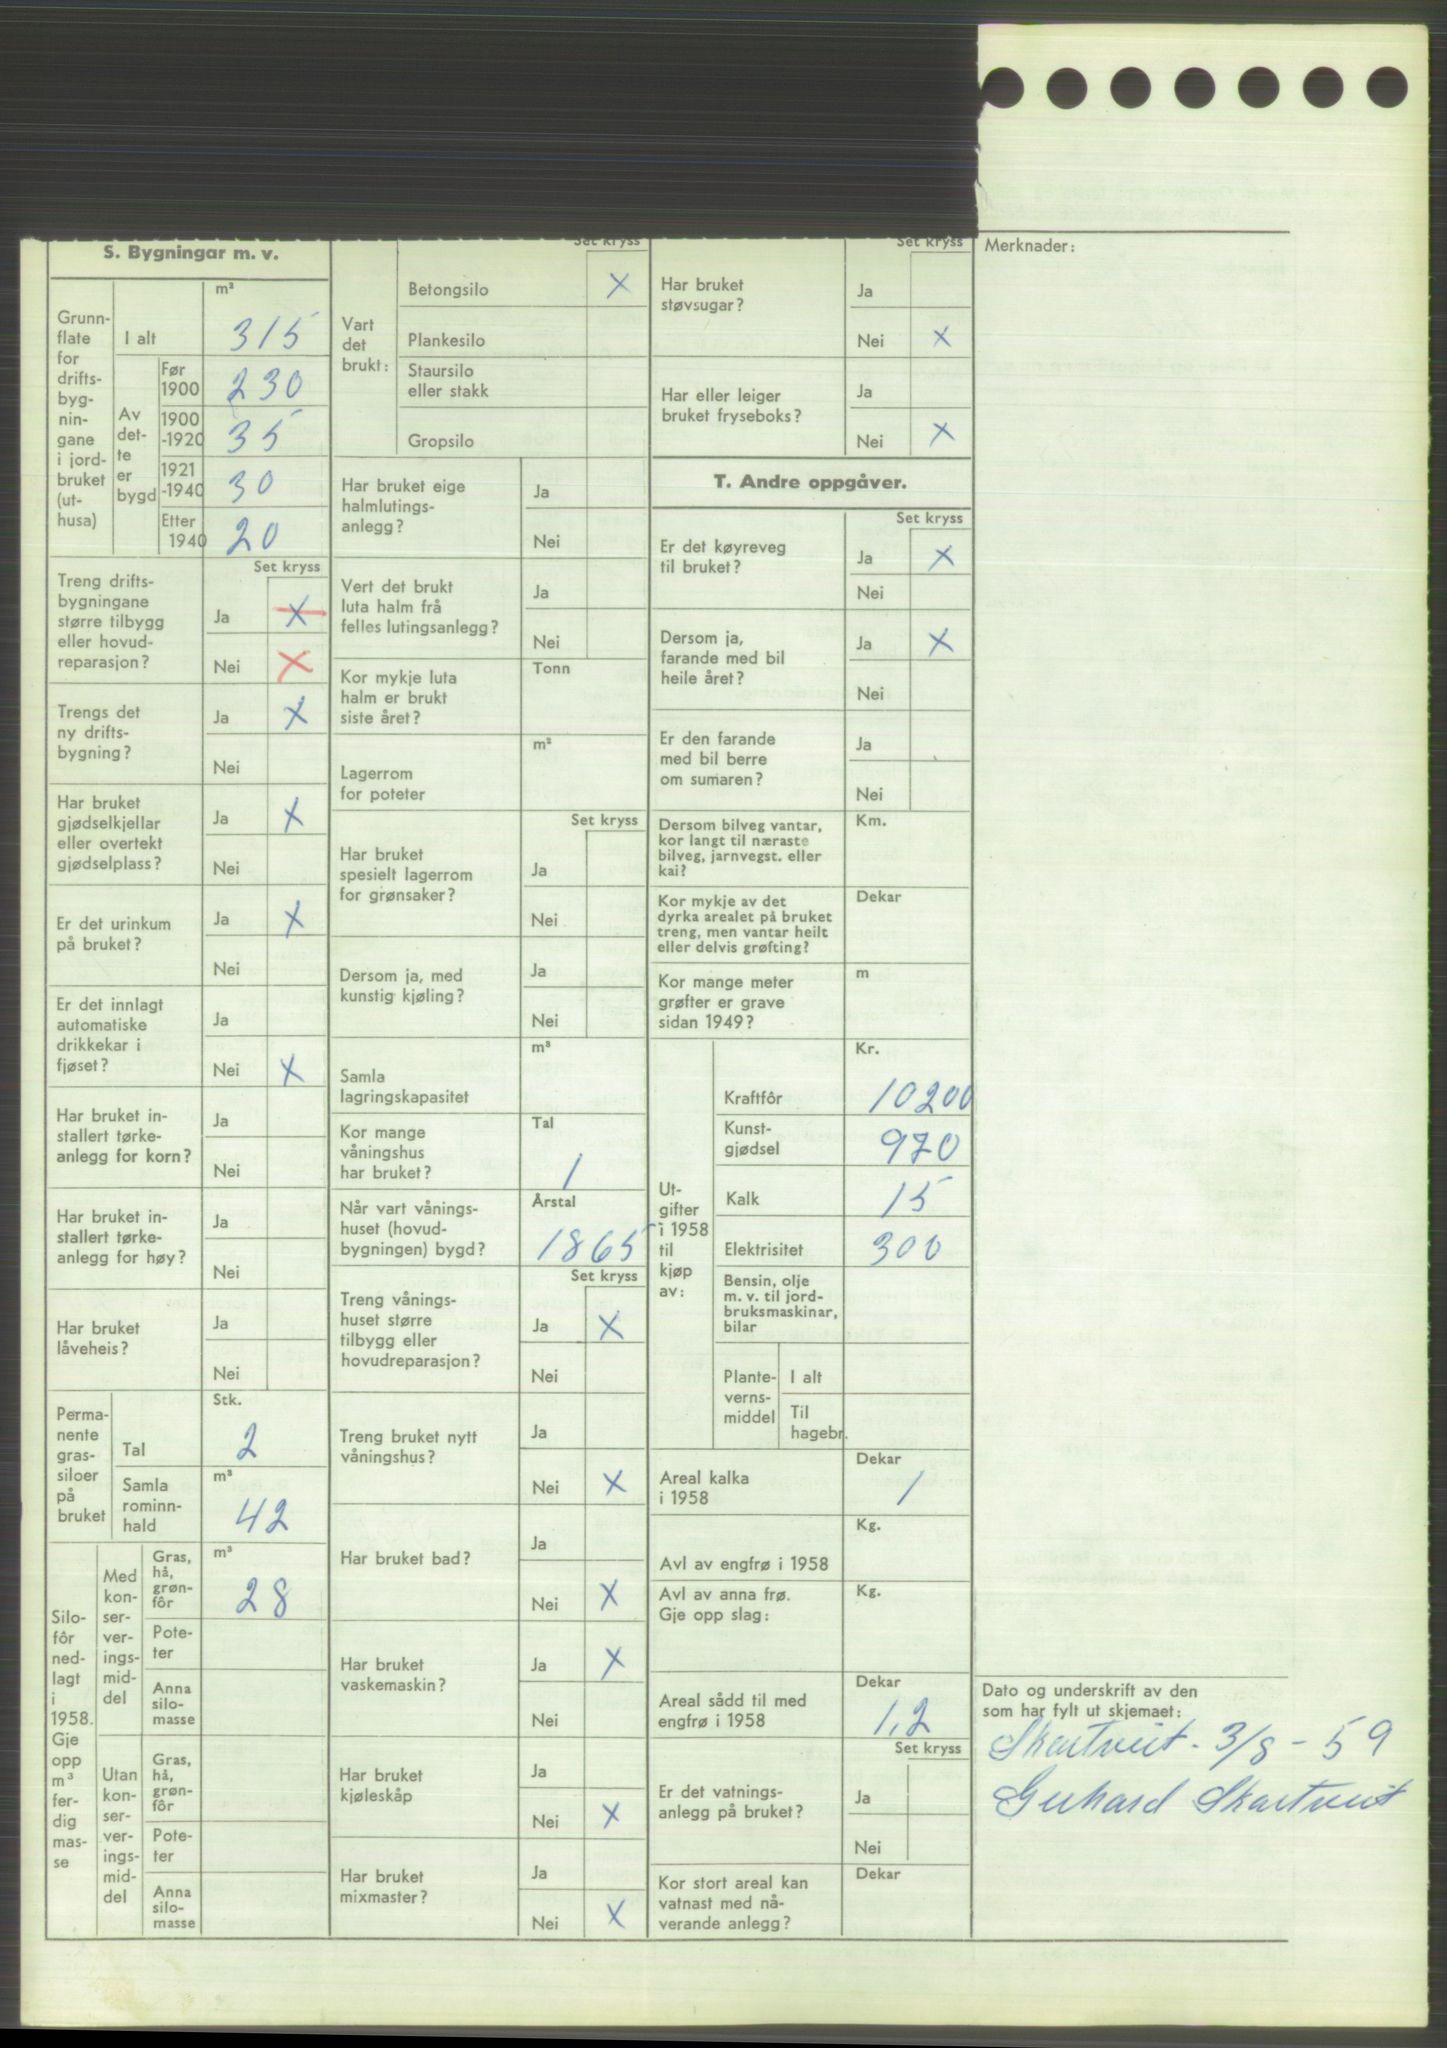 S. Bygningar m. v.
Grunn-
flate
for
drifts-
byg-
nin-
gane
i jord-
bruket
(ut-
husa)
m²
I alt
315
Av
det-
te
er
bygd
Før
1900
230
1900
-1920
35
1921
-1940
30
Etter
1940
20
Set kryss
Treng drifts-
bygningane
større tilbygg
eller hovud-
reparasjon?
Ja X
Nei X
Trengs det
ny drifts-
bygning?
Ja X
Nei
Har bruket
gjødselkjellar
eller overtekt
gjødselplass?
Ja X
Nei
Er det urinkum
på bruket?
Ja X
Nei
Er det innlagt
automatiske
drikkekar i
fjøset?
Ja
Nei X
Har bruket in-
stallert tørke-
anlegg for korn?
Ja
Nei
Har bruket in-
stallert tørke-
anlegg for høy?
Ja
Nei
Har bruket
låveheis?
Ja
Nei
Perma-
nente
gras-
siloer
på
bruket
Stk.
Tal
2
m³
Samla
rominn-
hald
42
Silo-
fôr
ned-
lagt
i
1958.
Gje
opp
m³
fer-
dig
mas-
se
Med
kon-
ser-
ver-
ings-
mid-
del
Gras,
hå,
grøn-
fôr
m³
28
Pote-
ter
Anna
silo-
masse
Utan
kon-
ser-
ver-
ings-
mid-
del
Gras,
hå,
grøn-
fôr
Pote-
ter
Anna
silo-
masse
Set kryss
Vart
det
brukt:
Betongsilo X
Plankesilo
Staursilo
eller stakk
Gropsilo
Har bruket eige
halmlutings-
anlegg?
Ja
Nei
Vert det brukt
luta halm frå
felles lutingsanlegg?
Ja
Nei
Kor mykje luta
halm er brukt
siste året?
Tonn
Lagerrom
for poteter
m²
Set kryss
Har bruket
spesielt lagerrom
for grønsaker?
Ja
Nei
Dersom ja, med
kunstig kjøling?
Ja
Nei
Samla
lagringskapasitet
m³
Kor mange
våningshus
har bruket?
Tal
1
Når vart vånings-
huset (hovud-
bygningen) bygd?
Årstal
1865
Set kryss
Treng vånings-
huset større
tilbygg eller
hovudreparasjon?
Ja X
Nei
Treng bruket nytt
våningshus?
Ja
Nei X
Har bruket bad?
Ja
Nei X
Har bruket
vaskemaskin?
Ja X
Nei
Har bruket
kjøleskåp
Ja
Nei X
Har bruket
mixmaster?
Ja
Nei X
Set kryss
Har bruket
støvsugar?
Ja
Nei X
Har eller leiger
bruket fryseboks?
Ja
Nei X
T. Andre oppgåver.
Set kryss
Er det køyreveg
til bruket?
Ja X
Nei
Dersom ja,
farande med bil
heile året?
Ja X
Nei
Er den farande
med bil berre
om sumaren?
Ja
Nei
Dersom bilveg vantar,
kor langt til næraste
bilveg, jarnvegst. eller
kai?
Km.
Kor mykje av det
dyrka arealet på bruket
treng, men vantar heilt
eller delvis grøfting?
Dekar
Kor mange meter
grøfter er grave
sidan 1949?
m
Ut-
gifter
i 1958
til
kjøp
av:
Kr.
Kraftfôr
10200
Kunst-
gjødsel
970
Kalk
15
Elektrisitet
300
Bensin, olje
m. v. til jord-
bruksmaskinar,
bilar
Plante-
verns-
middel
I alt
Til
hagebr.
Areal kalka
i 1958
Dekar
1
Avl av engfrø i 1958
Kg.
Avl av anna frø.
Gje opp slag:
Kg.
Areal sådd til med
engfrø i 1958
Dekar
1,2
Set kryss
Er det vatnings-
anlegg på bruket?
Ja
Nei
Kor stort areal kan
vatnast med nå-
verande anlegg?
Dekar
Merknader:
Dato og underskrift av den
som har fylt ut skjemaet:
Skartveit - 3/8 - 59
Gerhard Skartveit